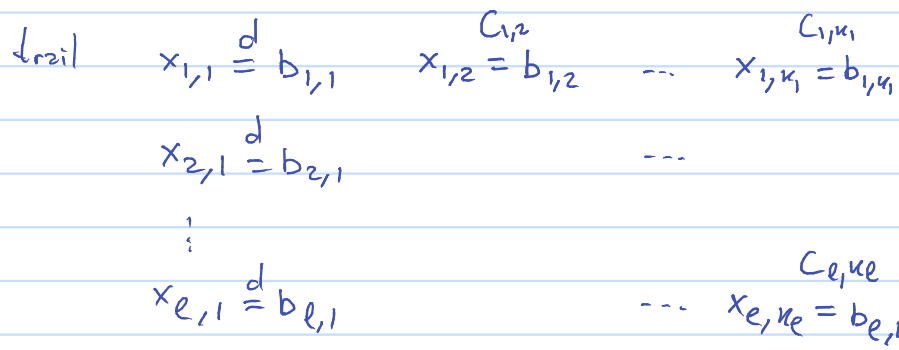 trail x_{1,1} \overset{d}{=} b_{1,1} x_{1,2} \overset{C_{1,2}}{=} b_{1,2} ... x_{1,k_1} \overset{C_{1,k_1}}{=} b_{1,k_1}
x_{2,1} \overset{d}{=} b_{2,1} ...
⋮
x_{ℓ,1} \overset{d}{=} b_{ℓ,1} ... x_{ℓ,k_ℓ} \overset{C_{ℓ,k_ℓ}}{=} b_{ℓ,